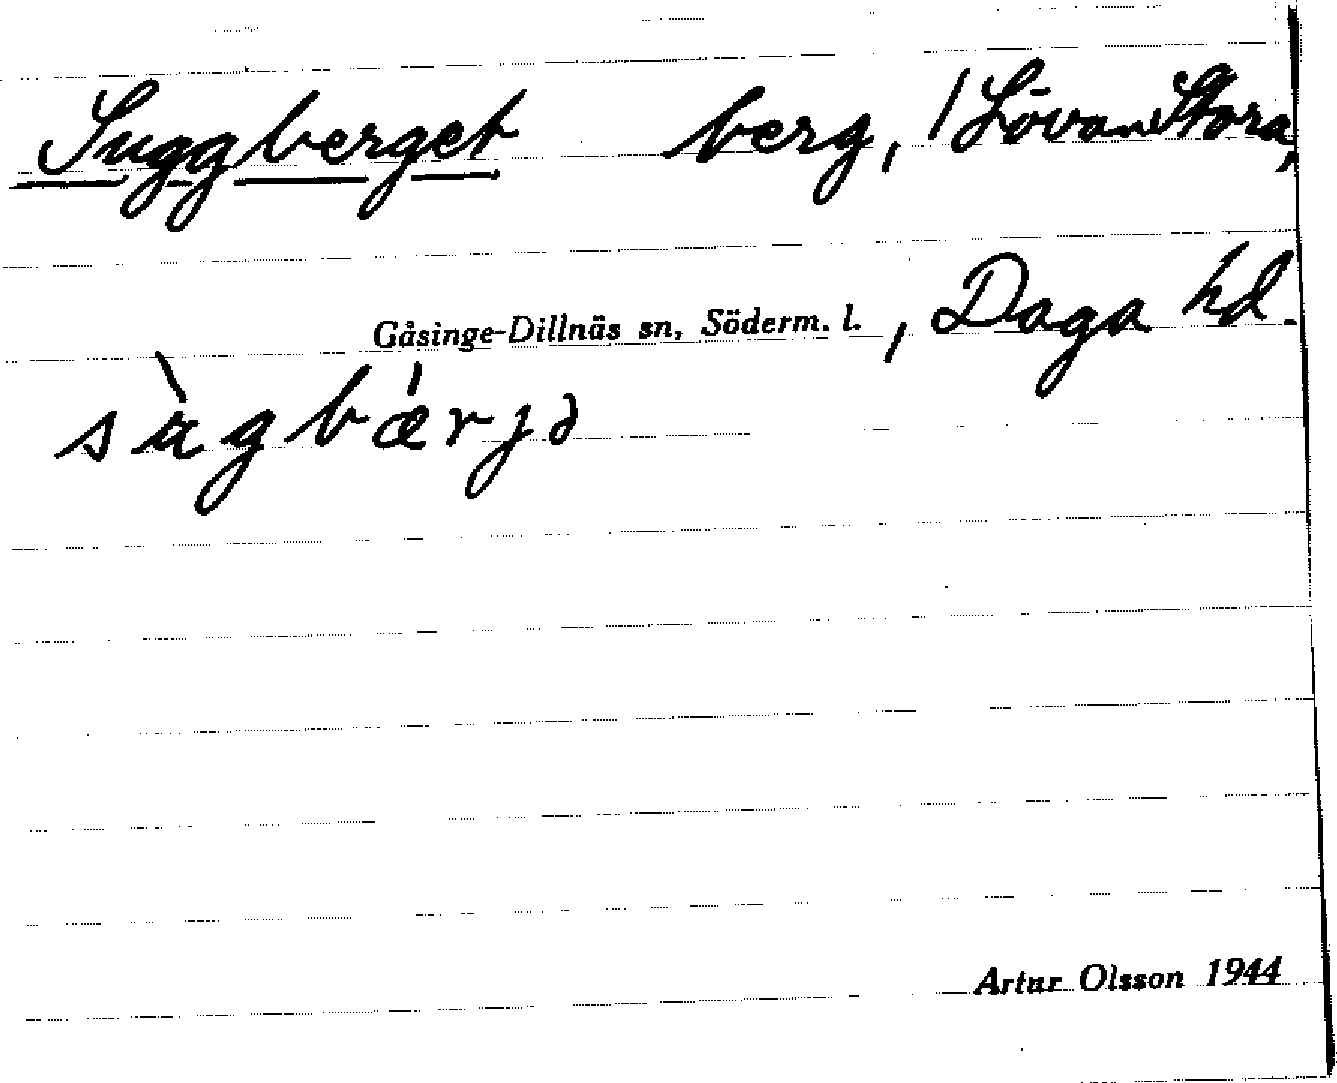 Suggberget berg, /Lövan Stora,
Gåsinge-Dillnäs sn, Söderm. l., Daga hd.
sùgbǽrjə
Artur Olsson 1944